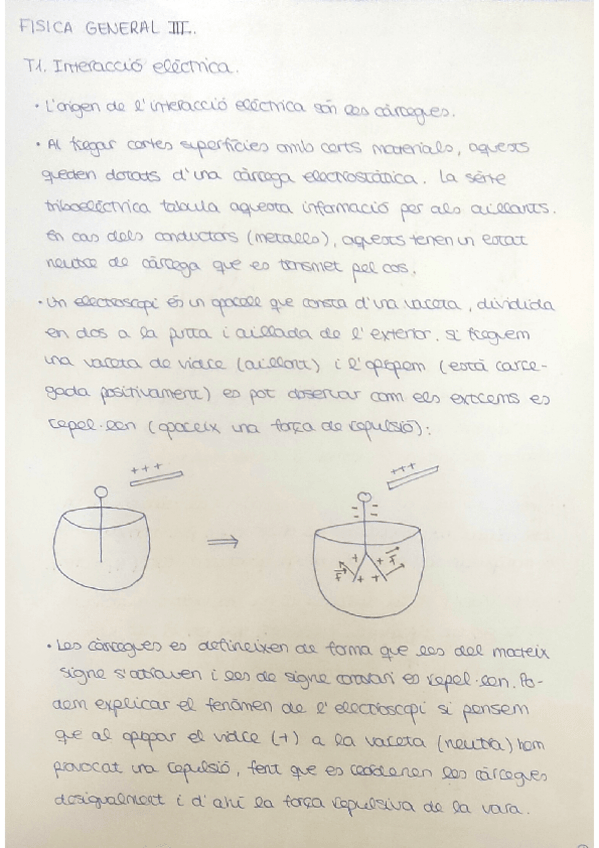 FISICA GENERAL III.
T1. Interacció elèctrica.
· L'origen de l'interacció elèctrica són les càrregues.
· Al fregar certes superfícies amb certs materials, aquests
queden dotats d'una càrrega electrostàtica. La sèrie
triboelèctrica tabula aquesta informació per als aïllants.
En cas dels conductors (metalls), aquests tenen un estat
neutre de càrrega que es transmet pel cos.
· Un electroscopi és un aparell que consta d'una vareta, dividida
en dos a la punta i aïllada de l'exterior. Si freguem
una vareta de vidre (aïllant) i l'apropem (està carre-
gada positivament) es pot observar com els extrems es
repel·len (apareix una força de repulsió):
+++
+++
⇒
- -
- -
+ +
F F
+ +
· Les càrregues es defineixen de forma que les del mateix
signe s'atrauen i les de signe contrari es repel·len. Po-
dem explicar el fenòmen de l'electroscopi si pensem
que al apropar el vidre (+) a la vareta (neutra) hem
provocat una repulsió, fent que es reordenen les càrregues
desigualment i d'ahí la força repulsiva de la vara.